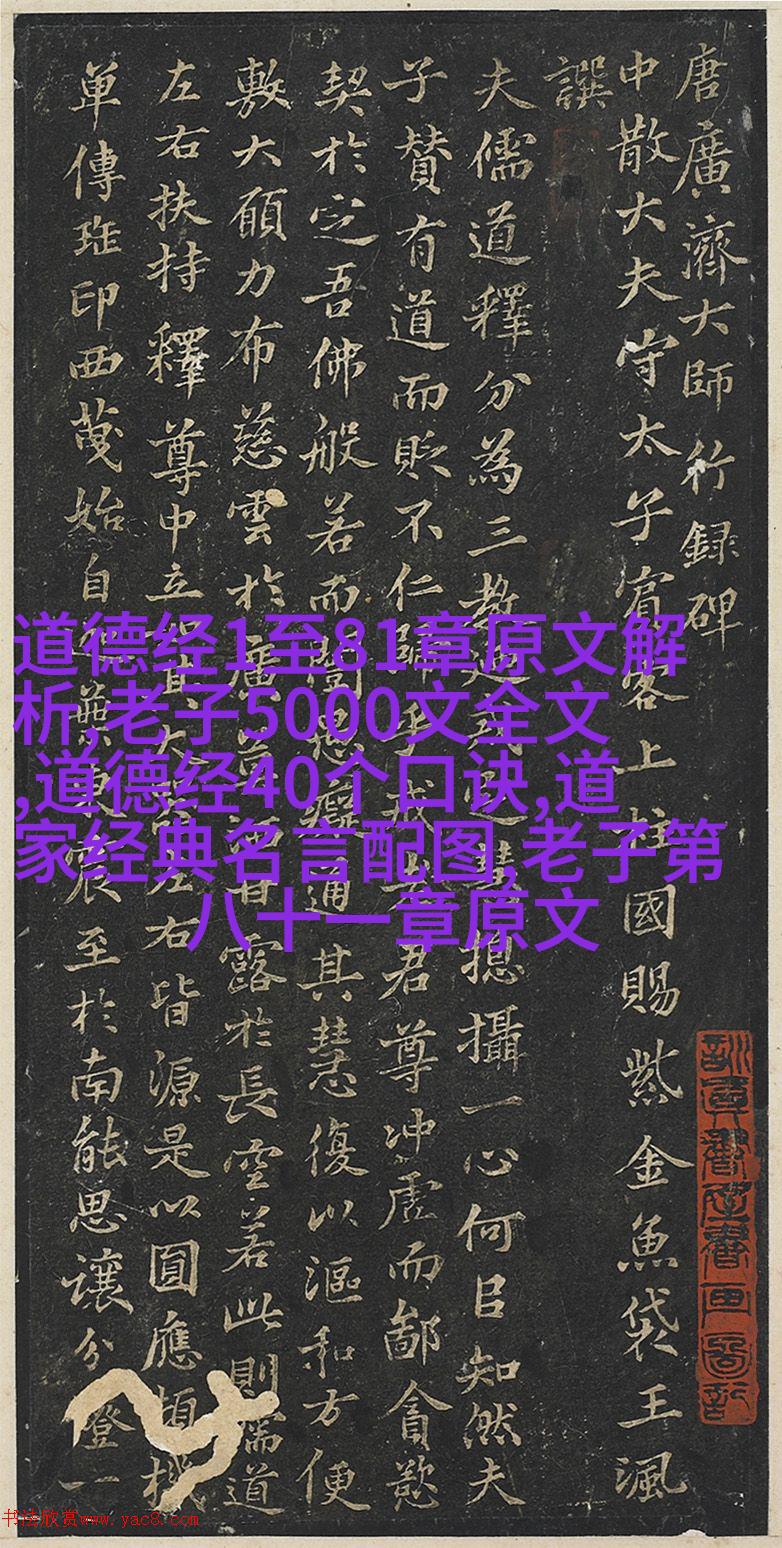 唐廣濟大師行録碑
中散大夫守太子賓客上柱國賜紫金魚袋王渢
譔
夫儒道釋分為三教慧揔攝一心何㠯知然夫
子賛有道而貶不仁歸乎戒君尊冲虛而鄙貪慾
契於㝎吾佛般若而闡通其慧復以漚和方便
敷大願力布慈雲於廣甘露於長空若此則儒道
左右扶持釋尊中立左右皆源是以圓應頓機
单傳印西始自東震至於南能思讓分燈一
道德经1至81章原文解
析,老子5000文全文
,道德经40个口诀,道
家经典名言配图,老子第
八十一章原文
书法欣赏www.yac8.com